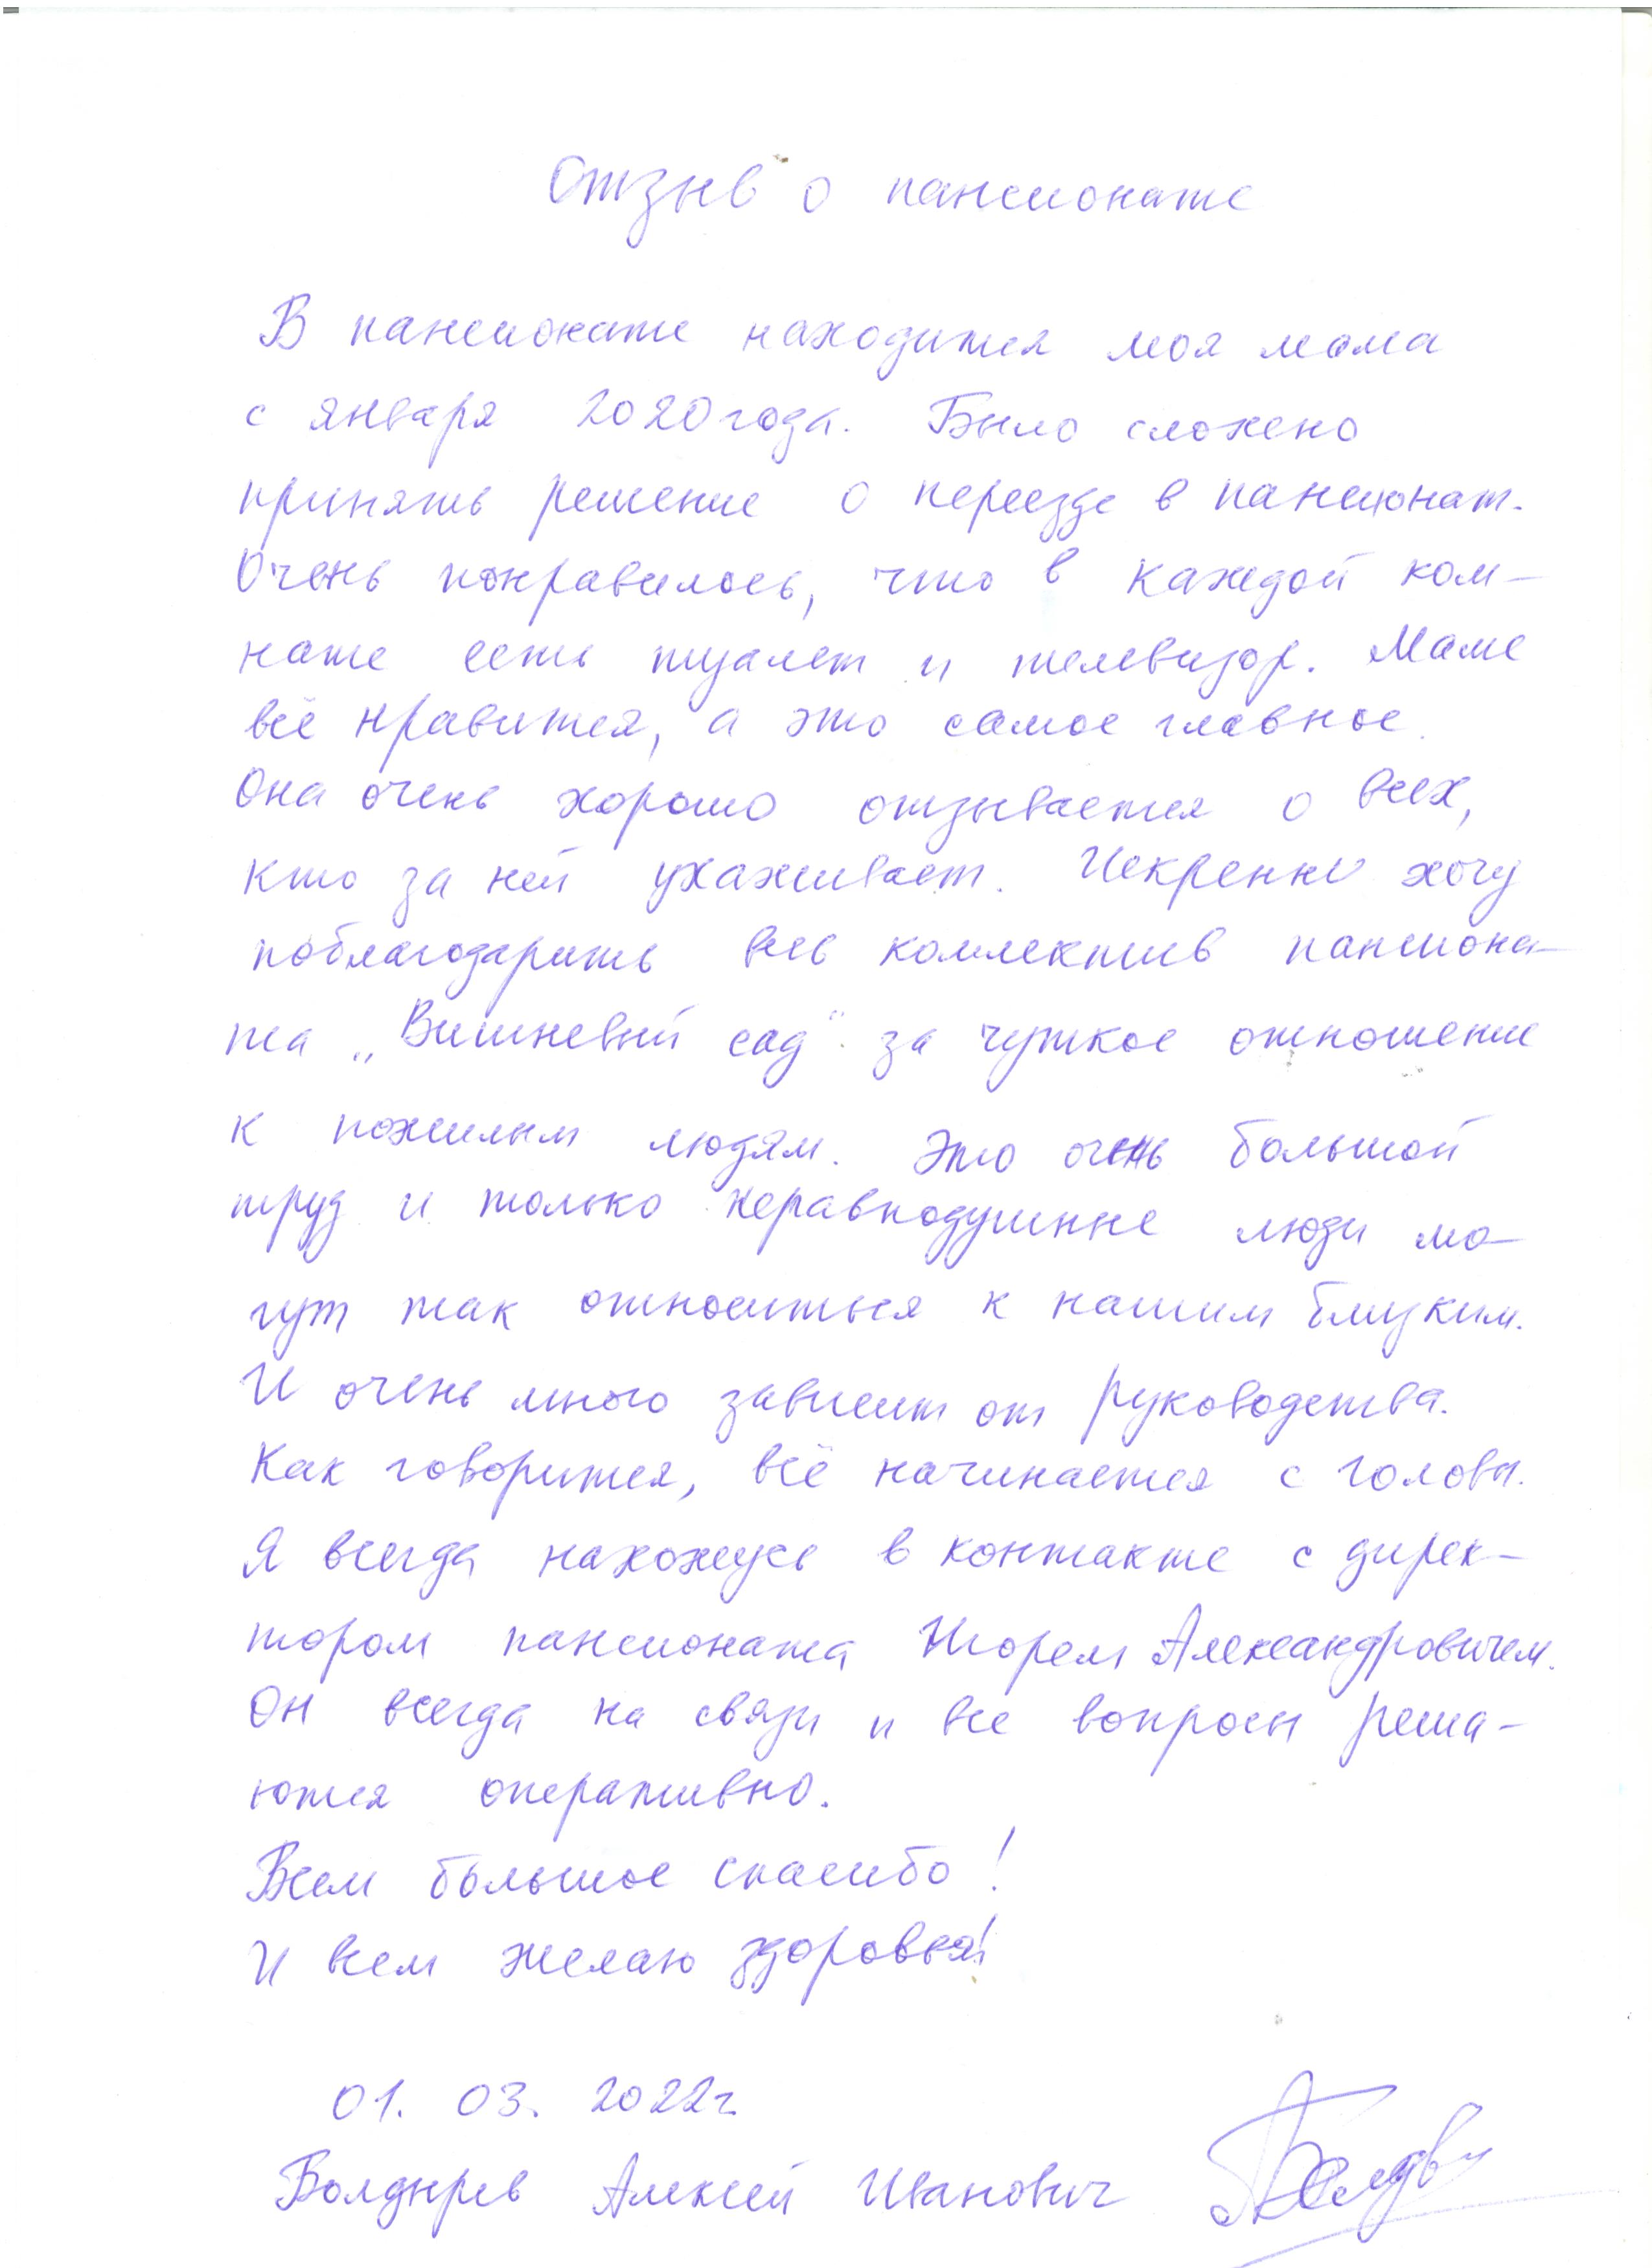 Отзыв о пансионате
В пансионате находится моя мама
с января 2020 года. Было сложено
принять решение о переезде в пансионат.
Очень понравилось, что в каждой ком-
нате есть туалет и телевизор. Маме
всё нравится, а это самое главное.
Она очень хорошо отзывается о всех,
кто за ней ухаживает. Искренне хочу
поблагодарить весь коллектив пансиона-
та „Вишневый сад“ за чуткое отношение
к пожилым людям. Это очень большой
труд и только неравнодушные люди мо-
гут так относиться к нашим близким.
И очень много зависит от руководства.
Как говорится, всё начинается с головы.
Я всегда нахожусь в контакте с дирек-
тором пансионата Игорем Александровичем.
Он всегда на связи и все вопросы реша-
ются оперативно.
Всем большое спасибо!
И всем желаю здоровья!
01. 03. 2022г.
Болдырев Алексей Иванович